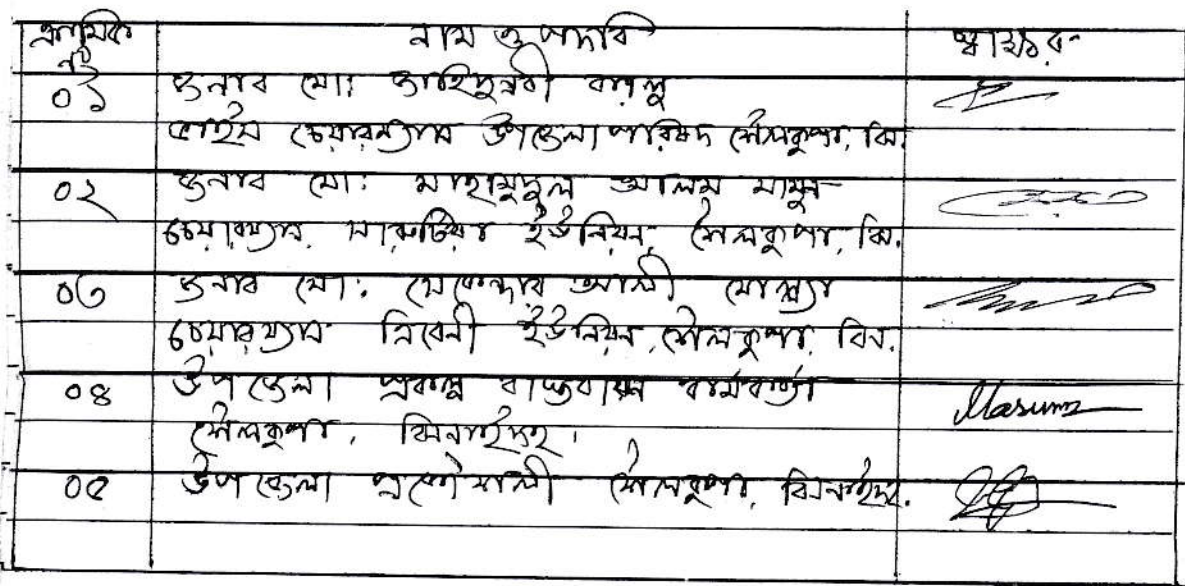 ক্রমিক নাম ও পদবি স্বাক্ষর
নং
০১ জনাব মো: জাহিদুন্নবী কালু
ভাইস চেয়ারম্যান উপজেলা পরিষদ শৈলকুপা, ঝি.
০২ জনাব মো: মাহামুদুল আলম মামুন
চেয়ারম্যান, সারুটিয়া ইউনিয়ন, শৈলকুপা, ঝি.
০৩ জনাব মো: সেকেন্দার আলী মোল্ল্যা
চেয়ারম্যান ত্রিবেনী ইউনিয়ন, শৈলকুপা, ঝিন.
০৪ উপজেলা প্রকল্প বাস্তবায়ন কর্মকর্তা Masum
শৈলকুপা, ঝিনাইদহ।
০৫ উপজেলা প্রকৌশলী শৈলকুপা, ঝিনাইদহ.